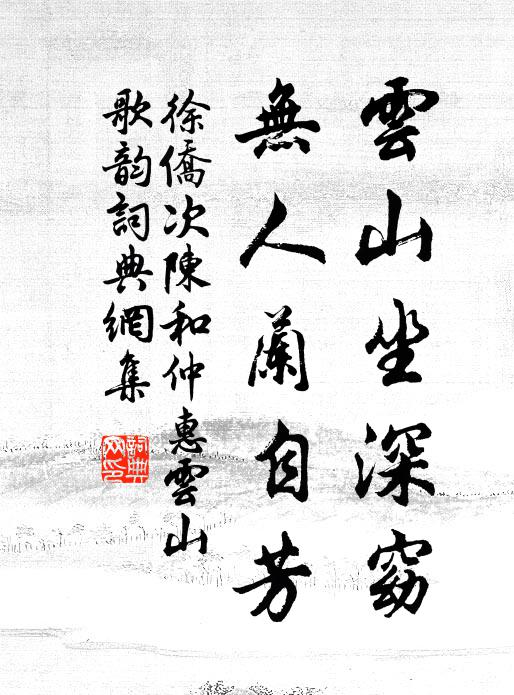 雲山坐深窈
無人蘭自芳
徐僑次陳和仲惠雲山
歌韵詞典網集
詞典
网印